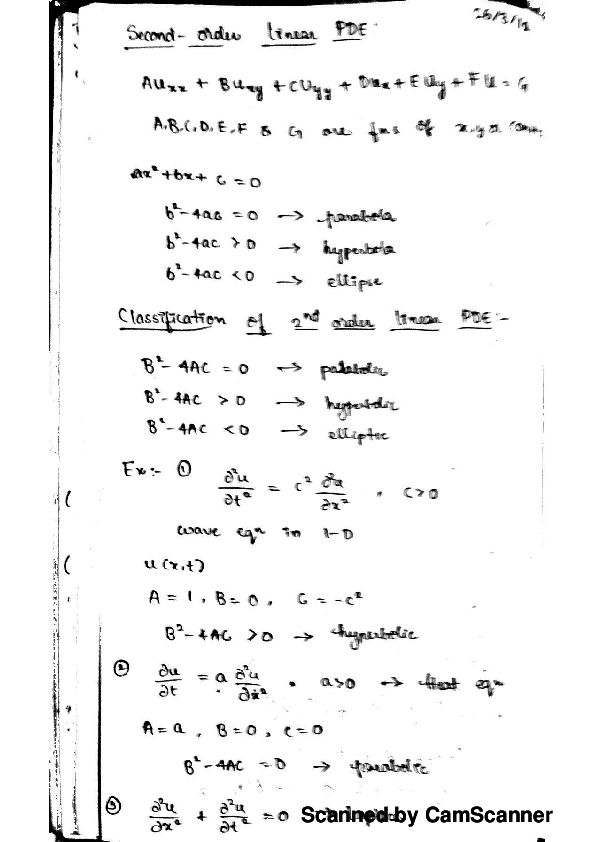 26/3/12
Second-order linear PDE:
Auxx + Buxy + Cuyy + Dux + EUy + FU = G
A,B,C,D,E,F & G are fns of x,y or
ax² + bx + c = 0
b²-4ac = 0 → parabola
b²-4ac > 0 → hyperbola
b²-4ac < 0 → ellipse
Classification of 2nd order linear PDE:-
B²-4AC = 0 → parabolic
B²-4AC > 0 → hyperbolic
B²-4AC < 0 → elliptic
Ex:- ① ∂²u/∂t² = c² ∂²u/∂x² , c>0
wave eqn in 1-D
u(x,t)
A = 1, B = 0, C = -c²
B²-4AC > 0 → hyperbolic
② ∂u/∂t = a ∂²u/∂x² , a>0 → Heat eqn
A = a, B = 0, C = 0
B²-4AC = 0 → parabolic
③ ∂²u/∂x² + ∂²u/∂t² = 0
Scanned by CamScanner